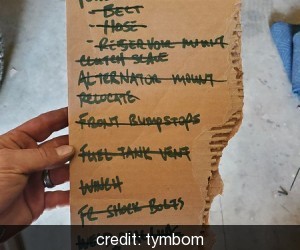 - BELT
- HOSE
- RESERVOIR MOUNT
CLUTCH SLAVE
ALTERNATOR MOUNT
RELOCATE
FRONT BUMPSTOPS
FUEL TANK VENT
WINCH
FR SHOCK BOLTS
credit: tymbom